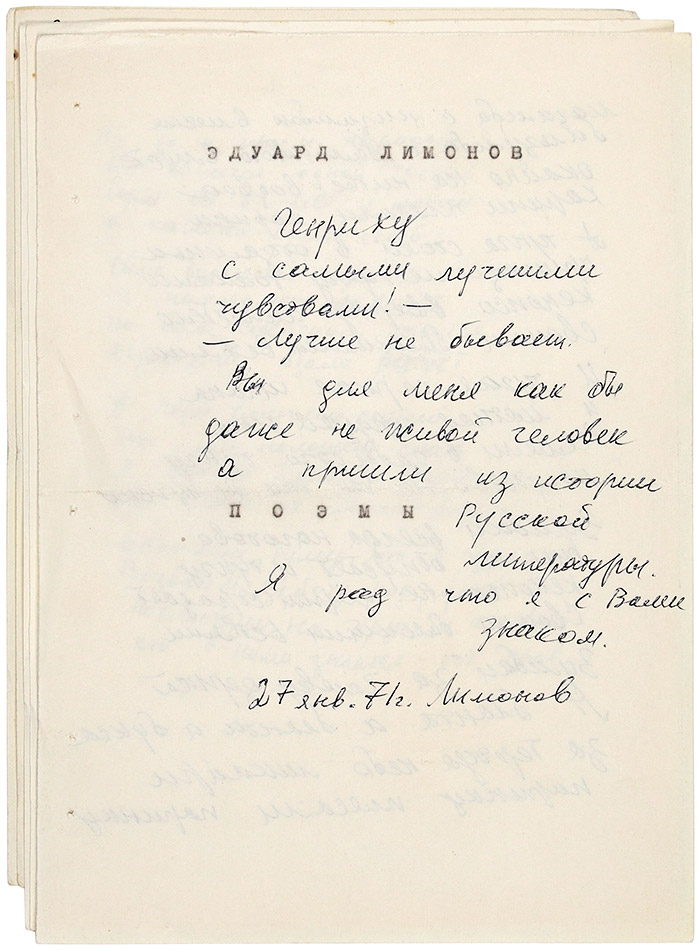 ЭДУАРД ЛИМОНОВ
Генриху
с самыми лучшими
чувствами! —
— Лучше не бывает.
Вы для меня как бы
даже не живой человек
а пришли из истории
ПОЭМЫ Русской
литературы.
Я рад что я с Вами
знаком.
27 янв. 71г. Лимонов